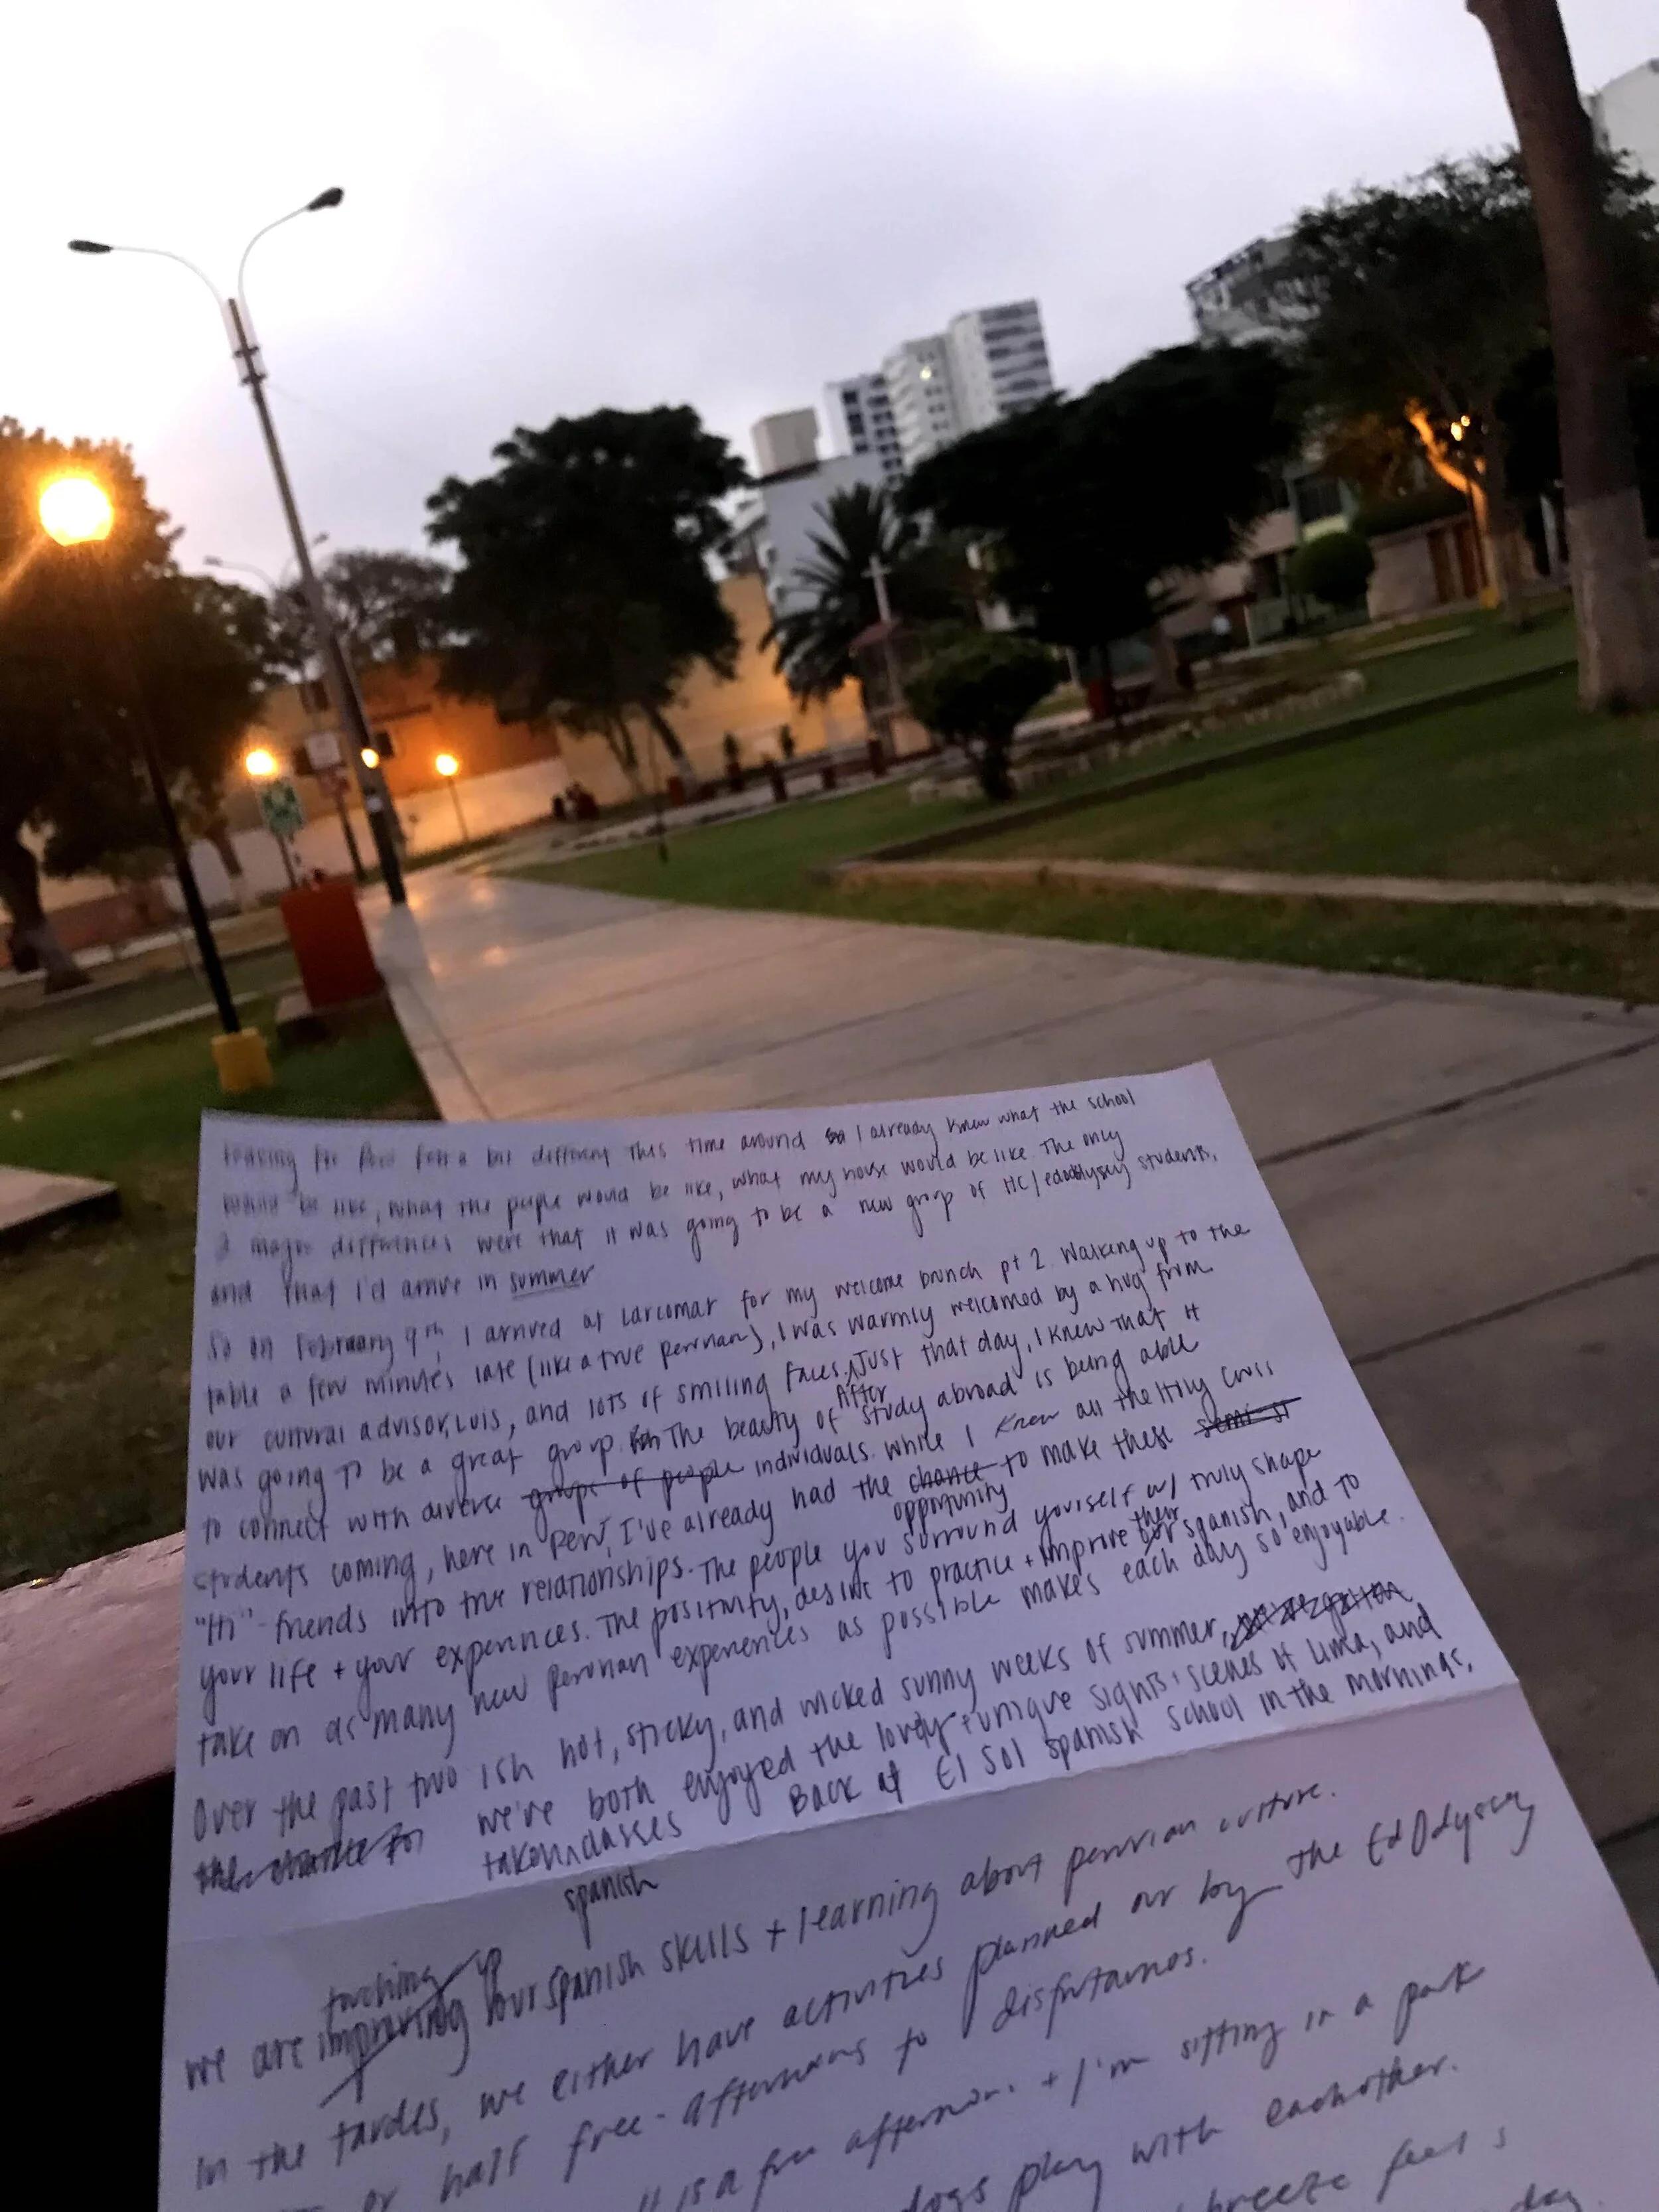 Leaving for Perú felt a bit different this time around I already knew what the school
would be like, what the people would be like, what my house would be like. The only
2 major differences were that it was going to be a new group of HC/edodyssey students,
and that I'd arrive in summer
So on February 9th, I arrived at Larcomar for my welcome brunch pt 2. Walking up to the
table a few minutes late (like a true peruvian), I was warmly welcomed by a hug from
our cultural advisor, Luis, and lots of smiling faces. After Just that day, I knew that it
was going to be a great group. The beauty of study abroad is being able
to connect with diverse groups of people individuals. While I knew all the Holy Cross
students coming, here in Perú, I've already had the chance opportunity to make these semi-st
"Hi"-friends into true relationships. The people you surround yourself w/ truly shape
your life + your experiences. The positivity, desire to practice + improve their spanish, and to
take on as many new peruvian experiences as possible makes each day so enjoyable.
Over the past two ish hot, sticky, and wicked sunny weeks of summer,
the chance for we've both enjoyed the lovely + unique sights + scenes of Lima, and
taken spanish classes Back at El Sol Spanish School in the mornings,
we are touching up improving our spanish skills + learning about peruvian culture.
In the tardes, we either have activities planned out by the EdOdyssey
or half free-afternoons to disfrutarnos.
is a free afternoon + I'm sitting in a park
dogs play with eachother.
breeze feels
day